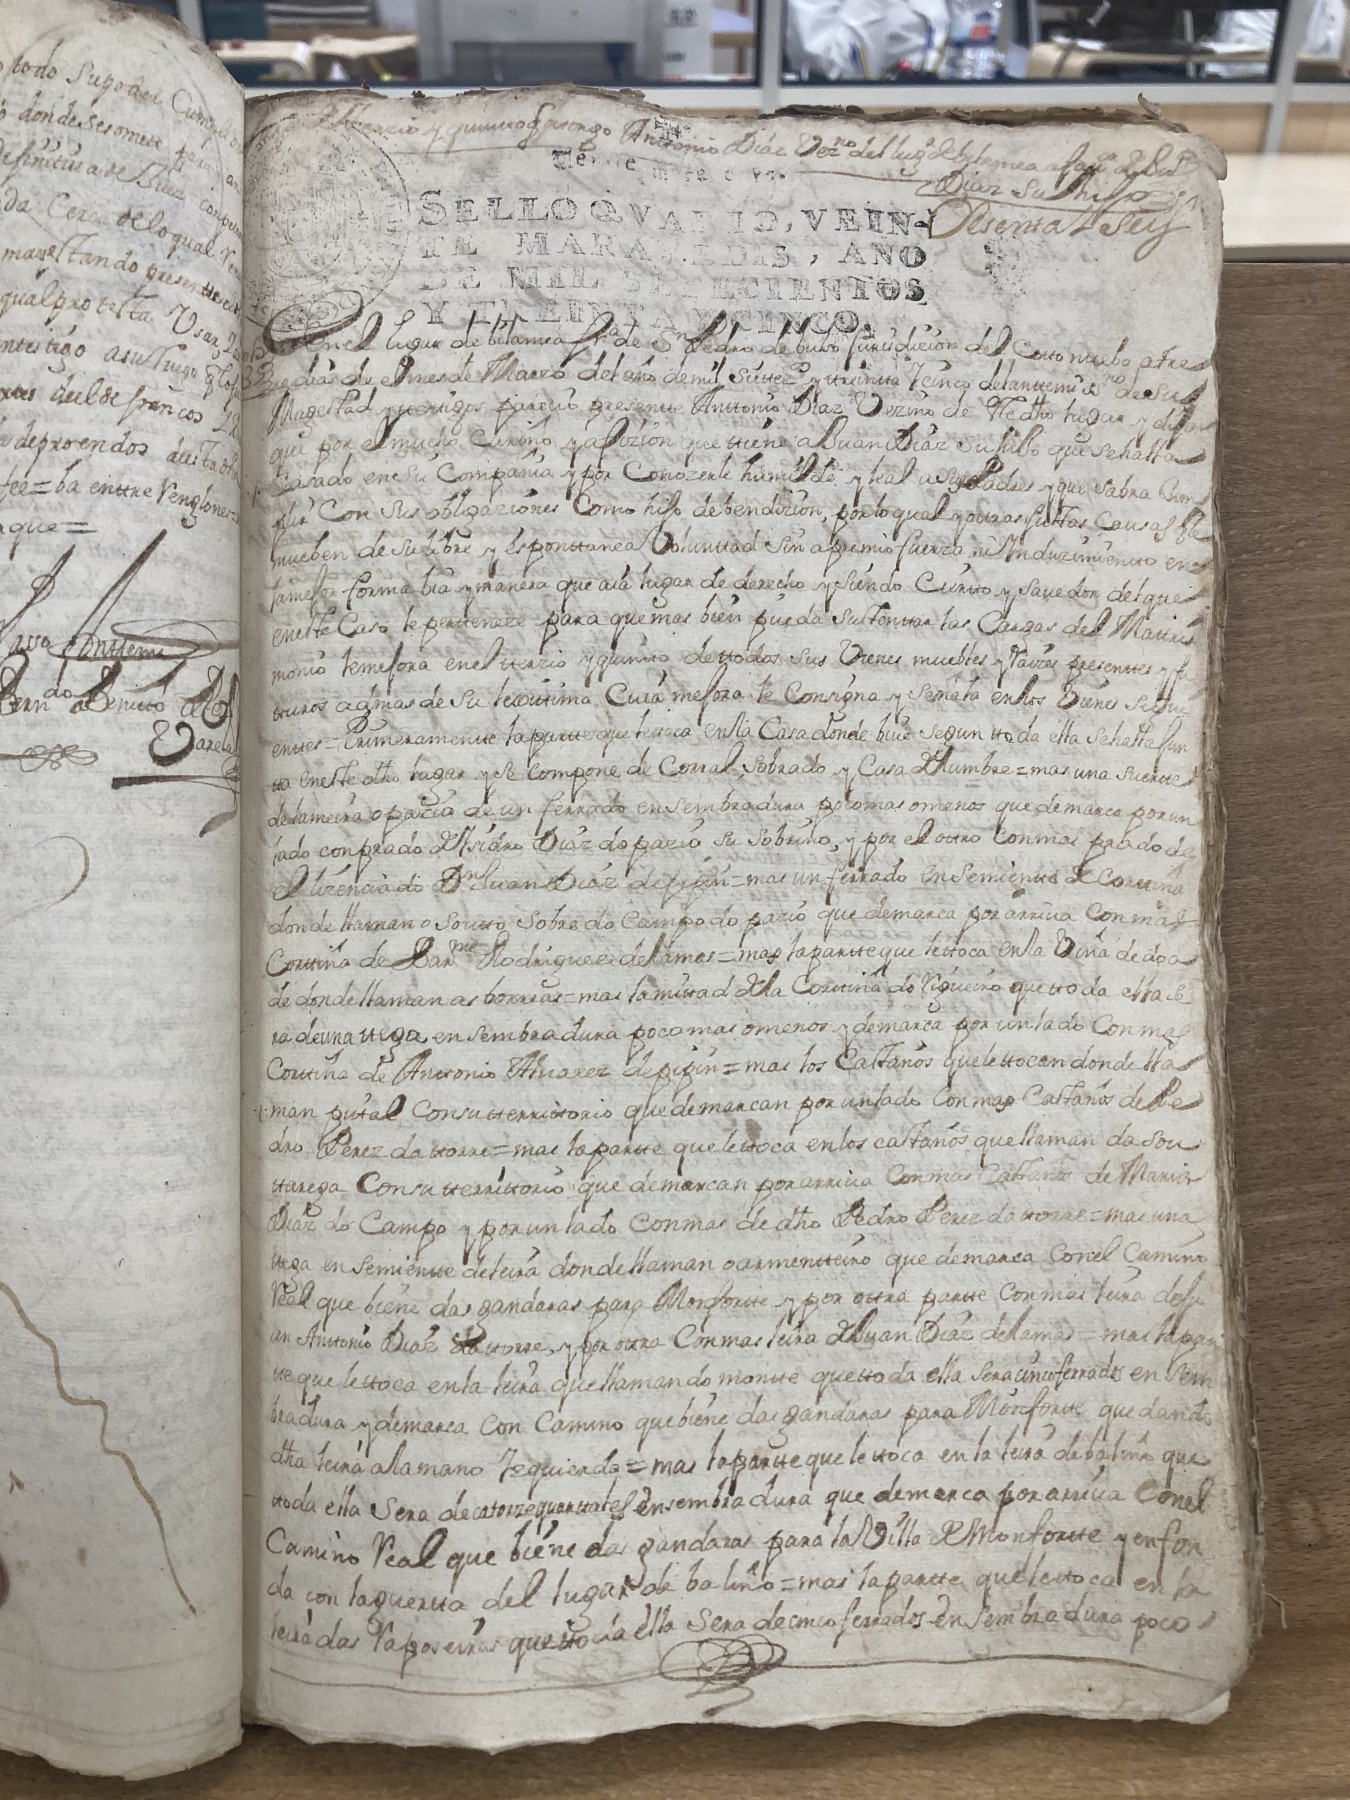 todo Supoder Cumpli
donde sesomete para
definitiva de Juez compe
da Cerca de lo qual
manifestando presentte
qual protesta Usar
nttestigo asu Ruego
del de francos
deproendos
fee = ba enttre Renglones =
que =
Passo Antte mi
Bern.do Benitto
Varela
terzio y quintto q ottorgo Antonio Diaz Vez.no del lug.r de bilamea afav.r de Ju.n
Diaz su hijo
Sesenta y Seis
SELLO QVARTO, VEIN-
TE MARAVEDIS, AÑO
DE MIL SETECIENTOS
Y TREINTA Y CINCO.
En el lugar de bilamea fra de Sn Pedro de bulso Jurisdicion del Couto nuebo a tres
dias de el mes de Marzo del año de mil Settez.s y ttreintta Zinco delantte mi ss.no de su
Magesttad y ttestigos parezio presentte Anttonio Diaz Vezino de este dho lugar y dijo
que por el mucho Cariño y aficion que ttiene a Juan Diaz Su hijo que se halla
Casado en Su Compania y por Conozerle humilde, y leal a Sus Padres y que sabra Cum
plir Con Sus obligaziones Como hijo de bendizion, por lo qual y ottras Justtas Causas q le
mueben de Su libre y esponttanea Volunttad Sin apremio fuerza ni Induzimientto en
la mejor forma bia y manera que aia lugar de derecho y Siendo Ciertto y Savedor del que
en estte Caso le pertteneze para que mas bien pueda Susttenttar las Cargas del Mattri
monio le mejora en el tterzio y quintto de ttodos Sus Vienes muebles y Raizes presenttes y fu
tturos ademas de Su lexittima Cuia mejora le Consigna y Senala en los Vienes Sigui
enttes = Primeramentte la partte que le ttoca en la Casa donde bive Segun ttoda ella Se halla Jun
tta en este dho lugar y se Compone de Corral, Sobrado y Casa de lumbre = mas una Suertte
de lameira o pazio de un ferrado en Sembradura poco mas o menos que demarca por un
lado con prado de Isidro Diaz do pazio su Sobrino, y por el ottro Con mas prado de
el lizenciado Dn Juan Diaz de pipin = mas un ferrado en Semientte de Corttiña
donde llaman o Soutto Sobre do Campo do pazio que demarca por arriva Con mas
Corttiña de Bar.me Rodriguez de lamas = mas la partte que le ttoca en la Viña de
de donde llaman as borreas = mas la mittad de la Corttiña do Figueiro que ttoda ella Se
ra de una ttega en Sembradura poco mas o menos y demarca por un lado Con mas
Corttiña de Anttonio Alvarez de pipin = mas los Casttaños que le ttocan donde lla
man puttal Con Su tterrittorio que demarcan por un lado Con mas Casttaños de Pe
dro Perez da ttorre = mas la partte que le ttoca en los casttaños que llaman da Sou
ttarega Con Su tterrittorio que demarcan por arriva Con mas Casttaños de Maria
Diaz do Campo y por un lado Con mas de dho Pedro Perez da ttorre = mas una
ttega en Semientte de leira donde llaman o armentteiro que demarca Con el Camino
Real que biene das gandaras para Monfortte y por ottra partte Con mas leira de Ju
an Anttonio Diaz da ttorre, y por ottra Con mas leira de Juan Diaz de lamas = mas la par
tte que le ttoca en la leira que llaman do montte que ttoda ella Sera cinco ferrados en Sem
bradura y demarca Con Camino que biene das gandaras para Monfortte quedando
dha leira a la mano Izquierda = mas la partte que le ttoca en la leira de baliño que
ttoda ella Sera de catorze quarttales en Sembradura que demarca por arriva Con el
Camino Real que biene das gandaras para la Villa de Monfortte y en fon
da con la guertta del lugar de baliño = mas la partte que le ttoca en la
leira das Raposeiras que ttoda ella Sera de cinco ferrados en Sembradura poco